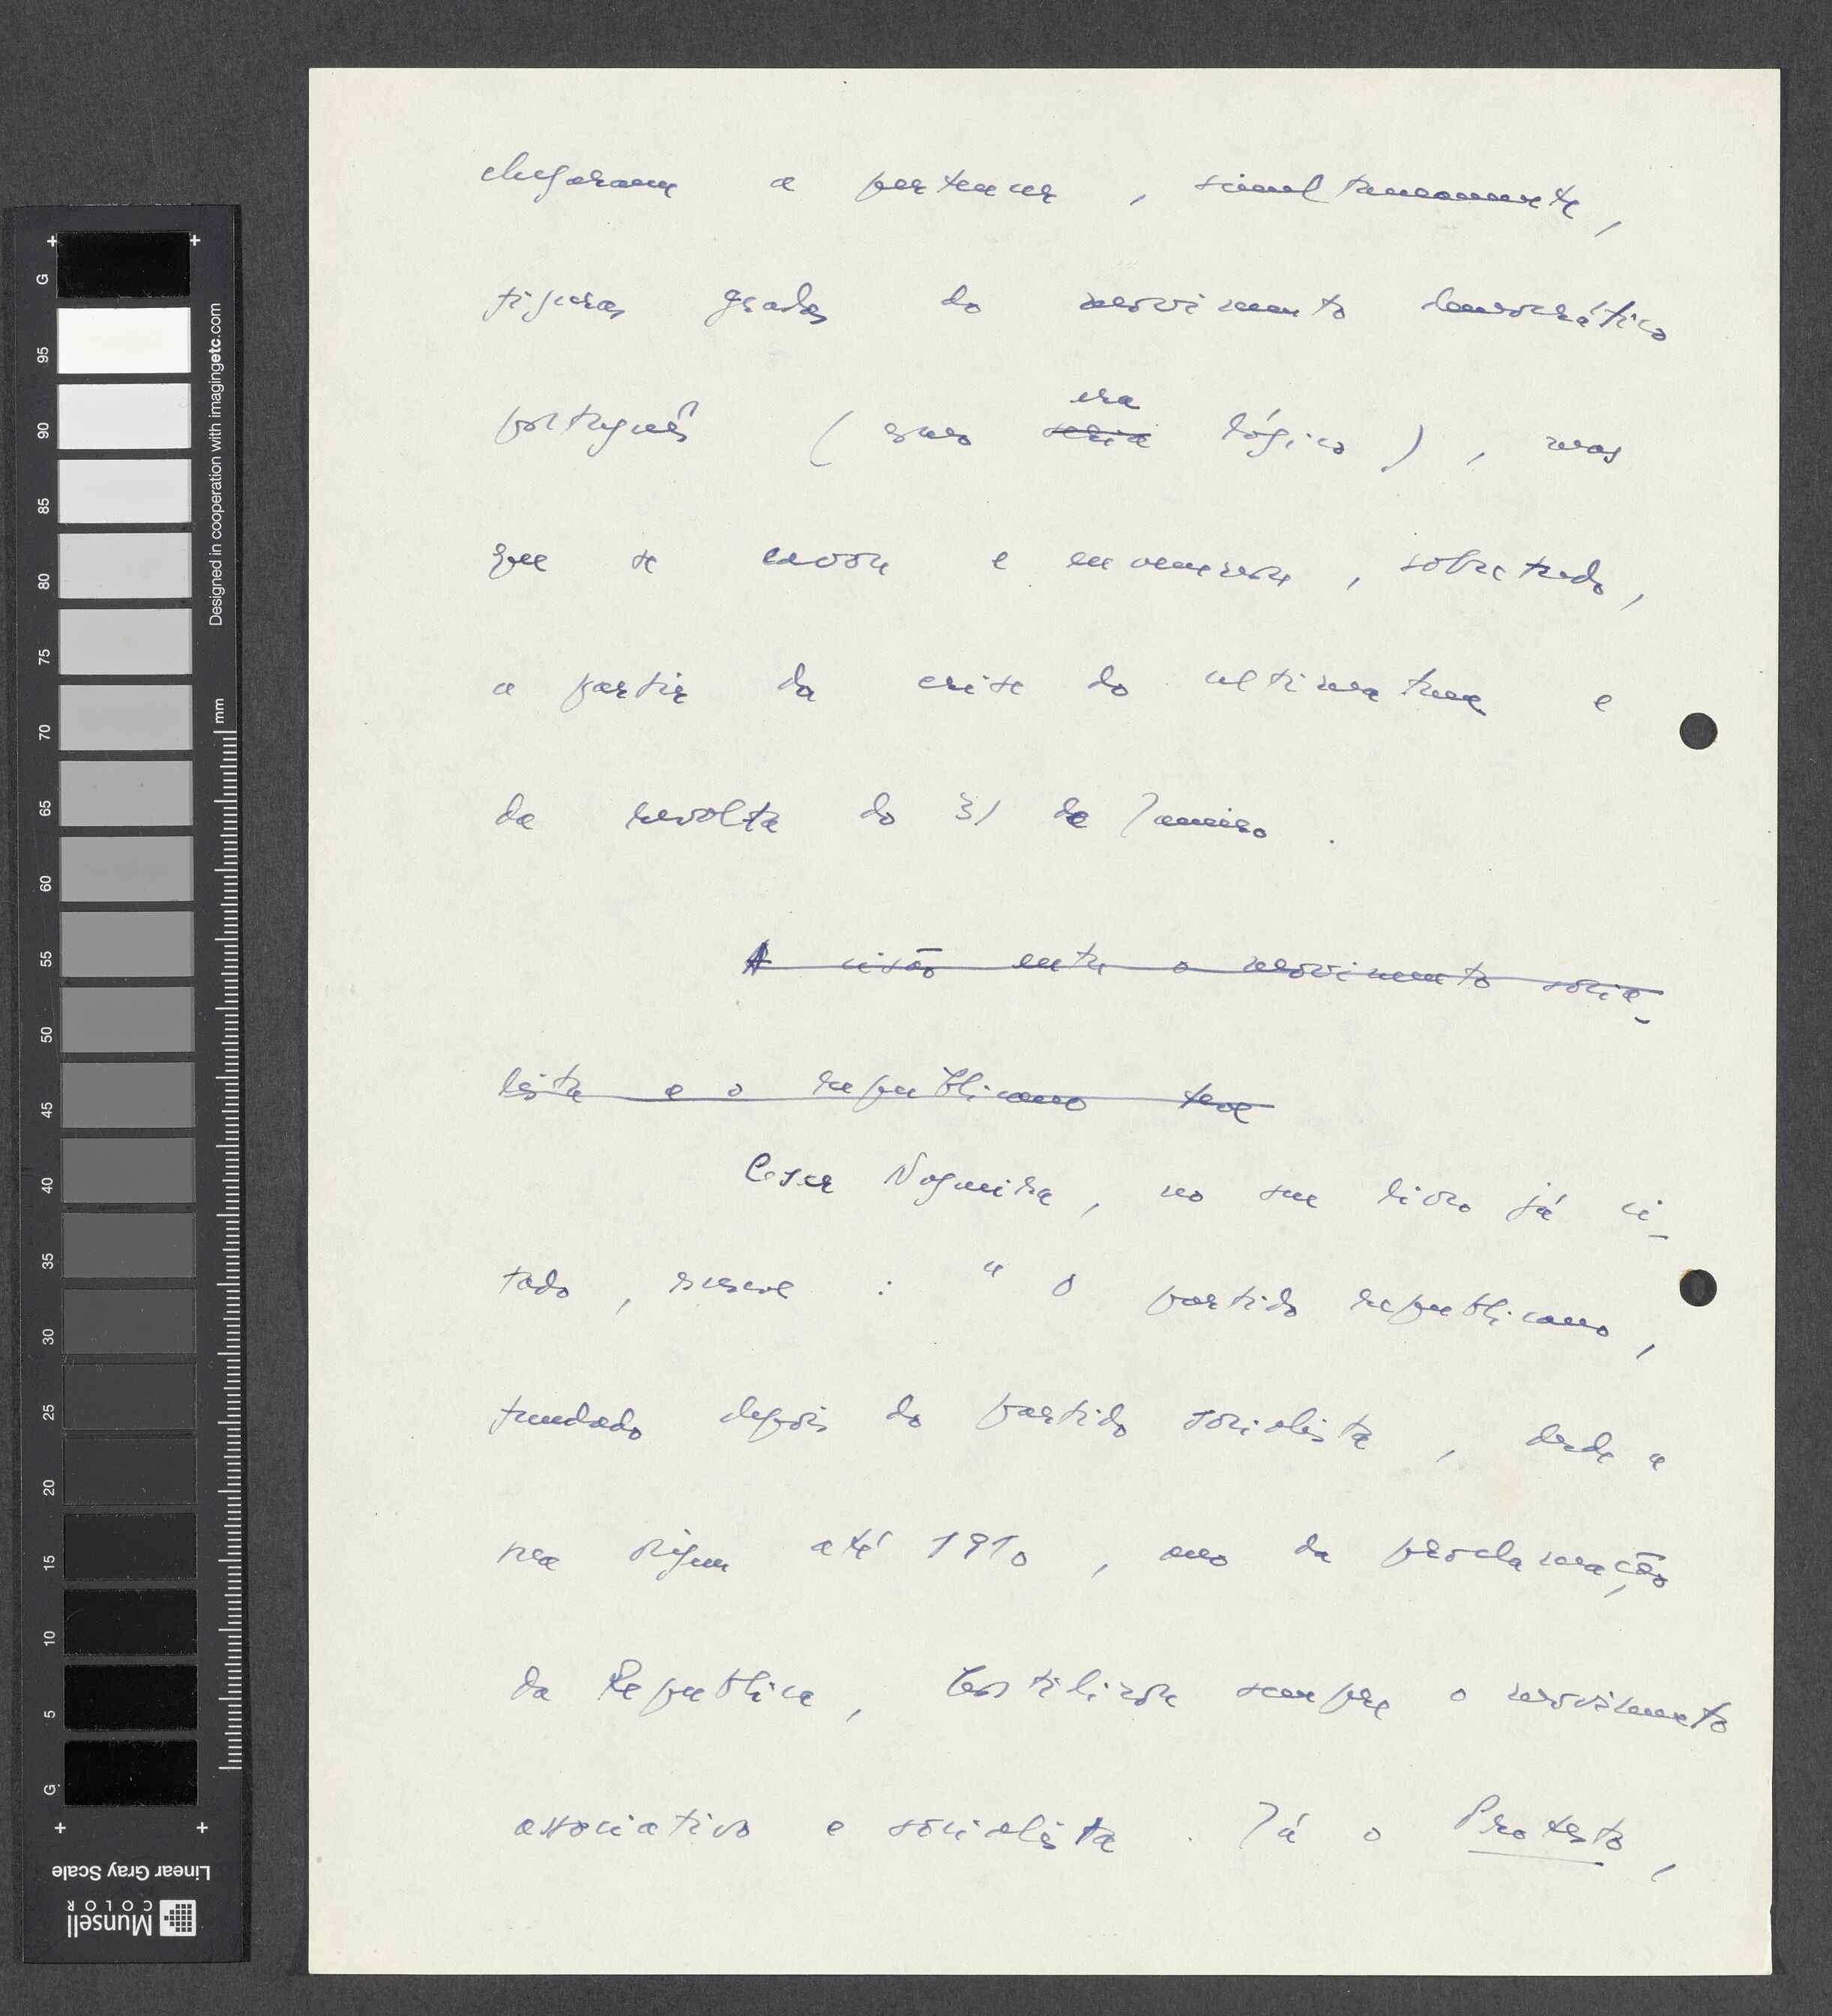 chegaram a pertencer, simultaneamente,
figuras gradas do movimento democrático
português (como era lógico), mas
seria
que se cavou e envenenou, sobretudo,
a partir da crise do ultimatum e
da revolta do 31 de Janeiro.
A cisão entre o movimento socia-
lista e o republicano teve
Cesar Nogueira, no seu livro já ci-
tado, escreve: "O partido republicano,
fundado depois do partido socialista, desde a
sua origem até 1910, ano da proclamação
da Republica, hostilizou sempre o movimento
associativo e socialista. Já o Protesto,
Designed in cooperation with imagingetc.com
mm
G 95 90 85 80 75 70 65 60 55 50 45 40 35 30 25 20 15 10 5 G
Linear Gray Scale
Munsell
COLOR